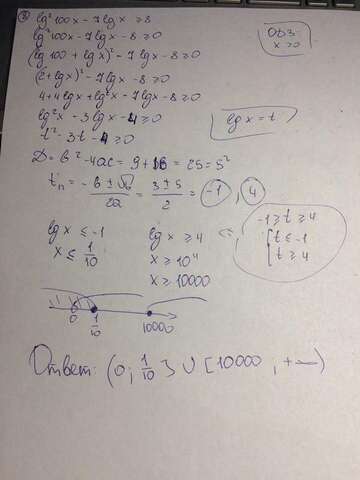 ③ lg² 100x - 7 lg x ≥ 8
lg² 100x - 7 lg x - 8 ≥ 0
ОДЗ:
x > 0
(lg 100 + lg x)² - 7 lg x - 8 ≥ 0
(2 + lg x)² - 7 lg x - 8 ≥ 0
4 + 4 lg x + lg² x - 7 lg x - 8 ≥ 0
lg² x - 3 lg x - 4 ≥ 0
lg x = t
t² - 3t - 4 ≥ 0
D = b² - 4ac = 9 + 16 = 25 = 5²
t₁,₂ = (-b ± √D)/2a = (3 ± 5)/2 = -1, 4
lg x ≤ -1
lg x ≥ 4
<=
-1 ≥ t ≥ 4
[t ≤ -1
t ≥ 4
x ≤ 1/10
x ≥ 10⁴
x ≥ 10000
0 1/10 10000
Ответ: (0; 1/10] ∪ [10000, +∞)